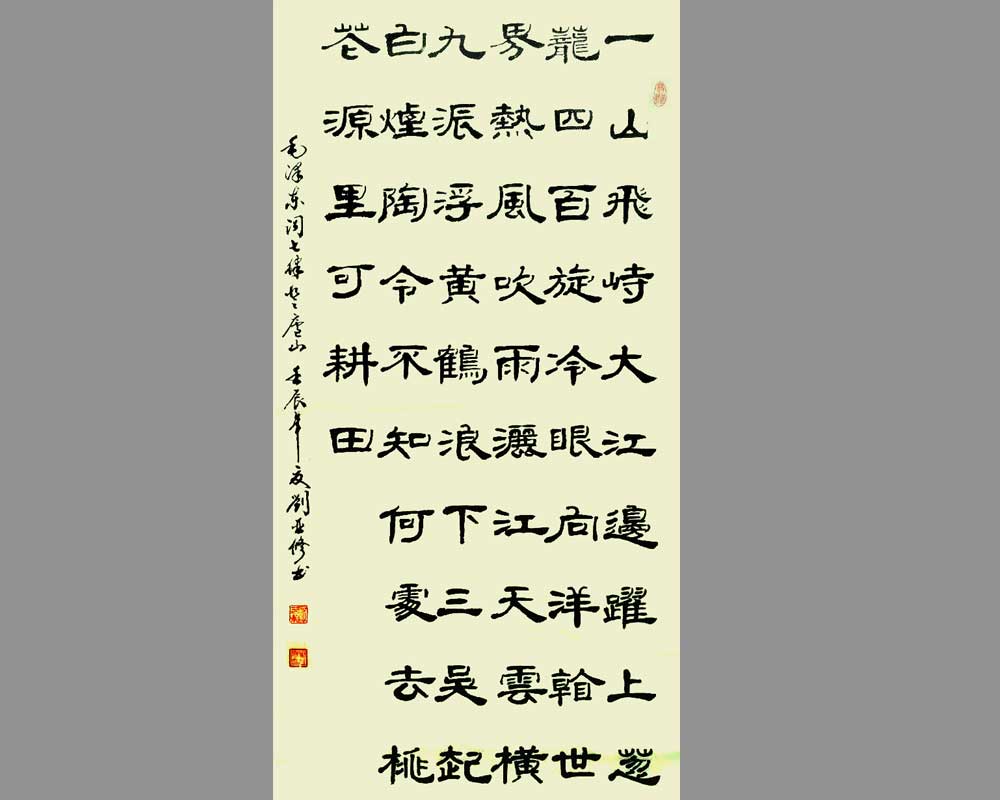 一山飛峙大江邊躍上葱
蘢四百旋冷眼向洋看世
界熱風吹雨灑江天雲橫
九派浮黄鶴浪下三吳起
白煙陶令不知何處去桃
花源里可耕田
毛泽东词七律登廬山 壬辰年夏劉亚修书